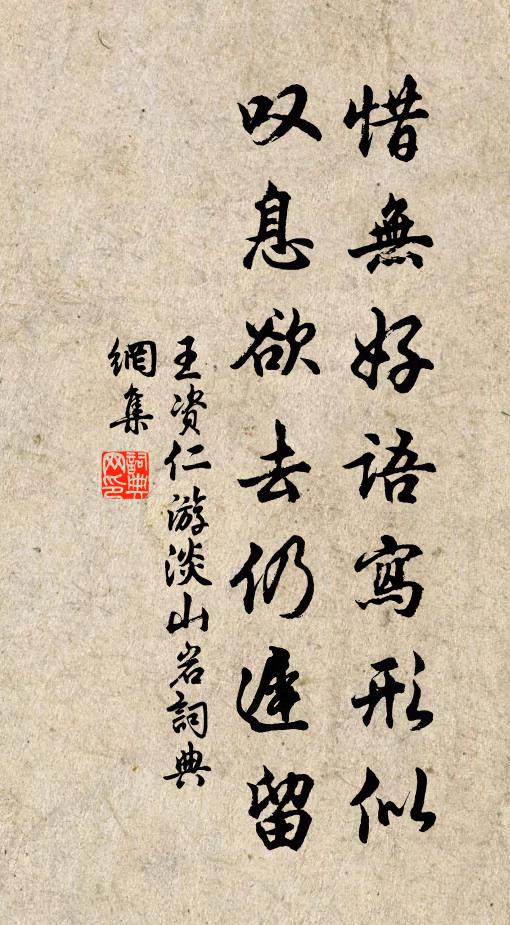 惜無好語寫形似
叹息欲去仍遲留
王资仁游淡山岩詞典
網集
詞典网印